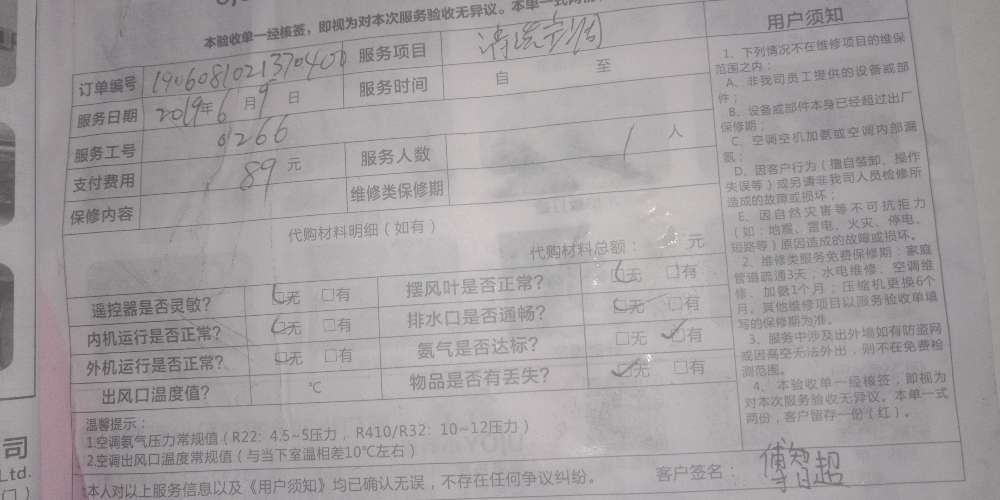 本验收单一经核签，即视为对本次服务验收无异议。本单一式两
订单编号 190608102137040 服务项目 清洗空调
服务日期 2019年6月9日 服务时间 自 至
服务工号 0266
支付费用 89元 服务人数 1人
保修内容 维修类保修期
代购材料明细（如有）
代购材料总额： 元
遥控器是否灵敏？ □无 □有 摆风叶是否正常？ □无 □有
内机运行是否正常？ □无 □有 排水口是否通畅？ □无 □有
外机运行是否正常？ □无 □有 氨气是否达标？ □无 □有
出风口温度值？ ℃ 物品是否有丢失？ □无 □有
温馨提示：
1.空调氨气压力常规值（R22：4.5~5压力，R410/R32：10~12压力）
2.空调出风口温度常规值（与当下室温相差10℃左右）
本人对以上服务信息以及《用户须知》均已确认无误，不存在任何争议纠纷。
客户签名：
用户须知
1、下列情况不在维修项目的维保
范围之内：
A、非我司员工提供的设备或部
件；
B、设备或部件本身已经超过出厂
保修期；
C、空调空机加氨或空调内部漏
氨；
D、因客户行为（擅自装卸、操作
失误等）或另请非我司人员检修所
造成的故障或损坏；
E、因自然灾害等不可抗拒力
（如：地震、雷电、火灾、停电、
短路等）原因造成的故障或损坏。
2、维修类服务免费保修期：家庭
管道疏通3天；水电维修、空调维
修、加氨1个月；压缩机更换6个
月。其他维修项目以服务验收单填
写的保修期为准。
3、服务中涉及出外墙如有防盗网
或因高空无法外出，则不在免费检
测范围。
4、本验收单一经核签，即视为
对本次服务验收无异议。本单一式
两份，客户留存一份（红）。
司
Ltd.
门）